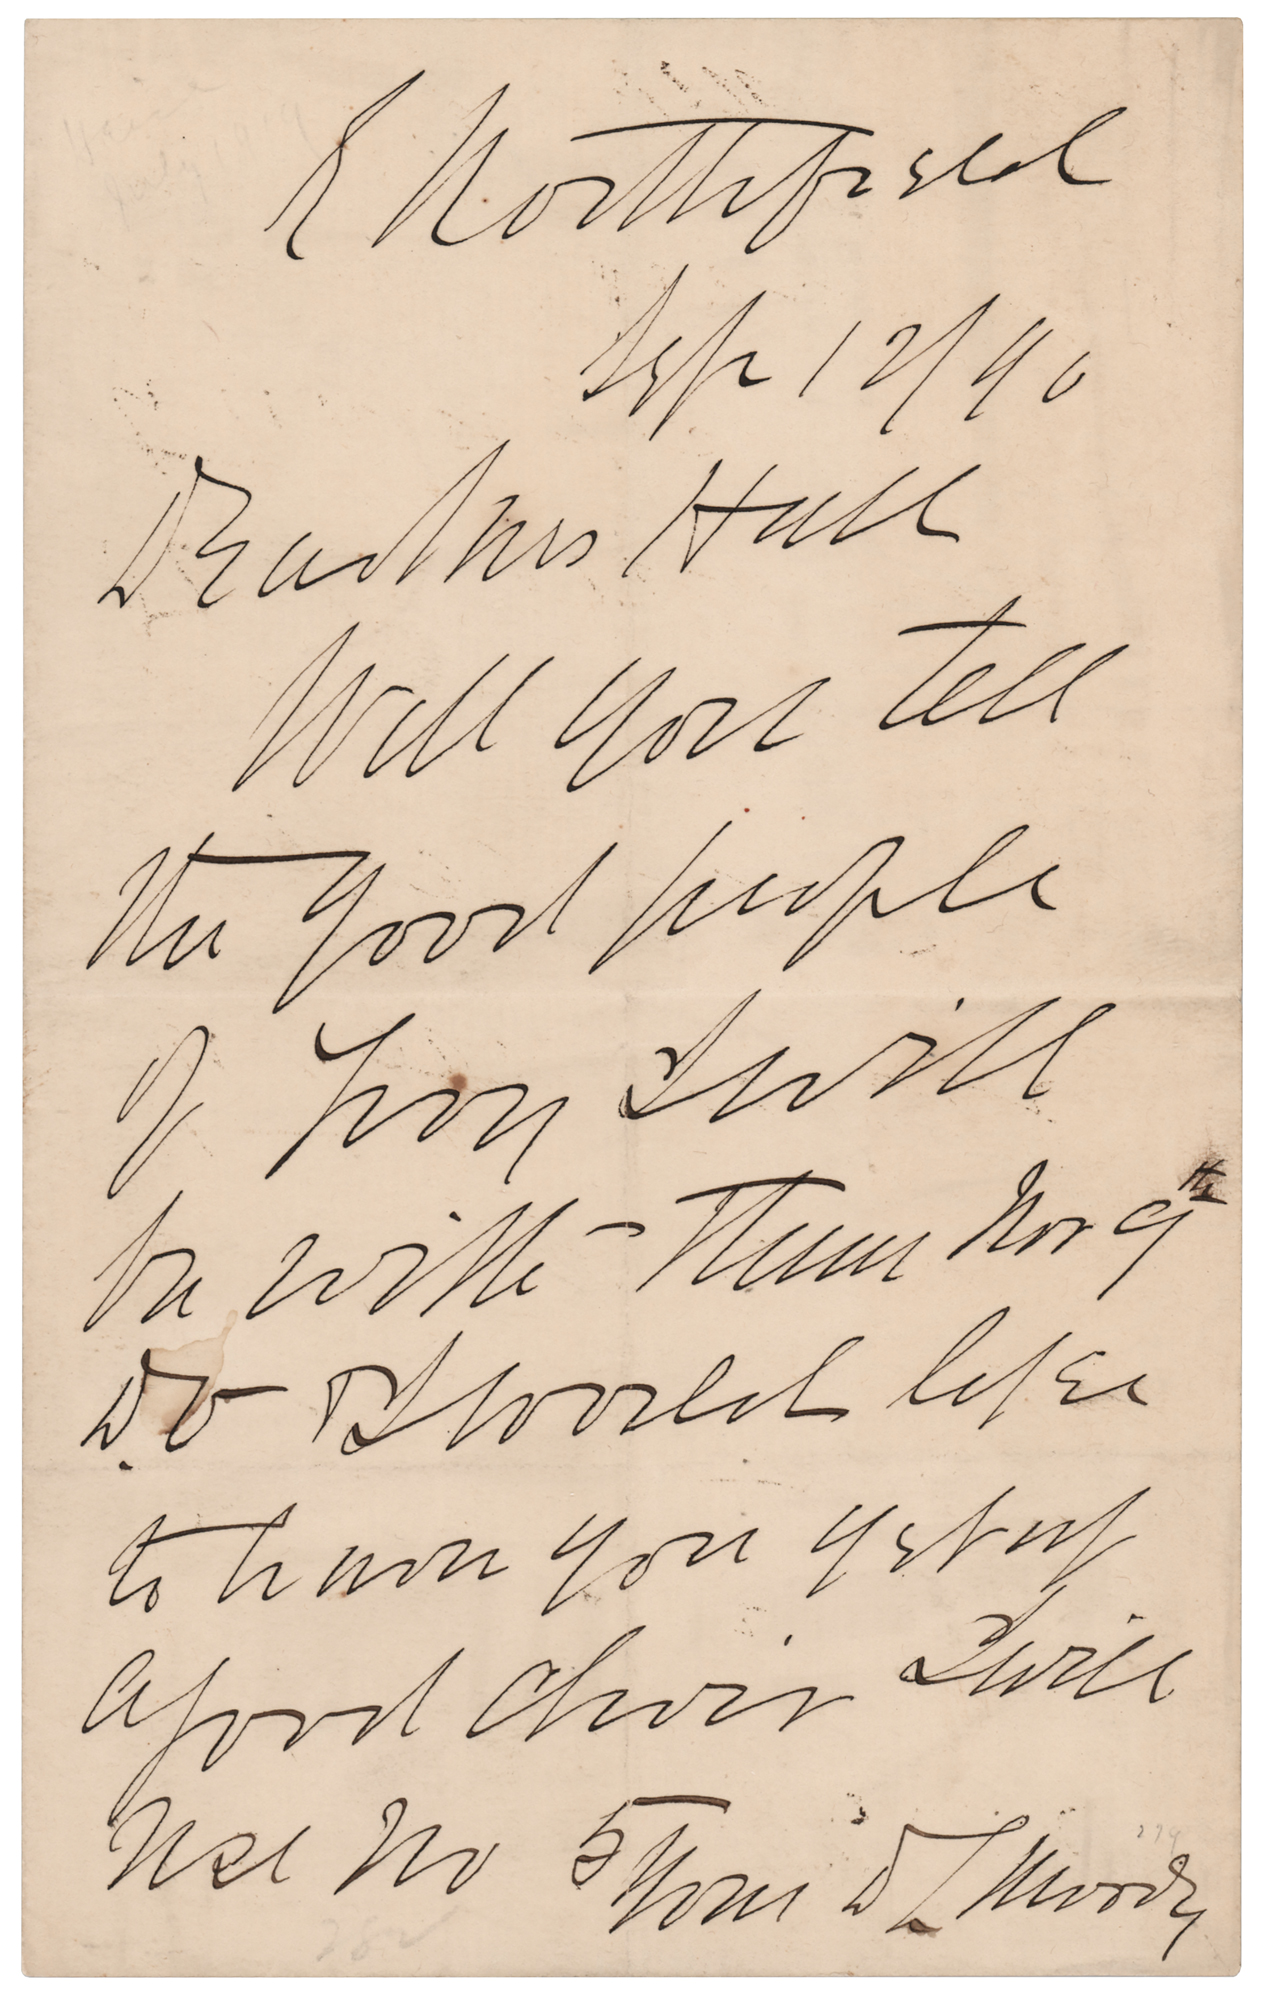 E Northfield
Sept 12/90
Dear Mrs Hall
Will you tell
the good people
of Troy I will
be with - them Nov 9th
Do I would like
to have you get up
a good choir I will
use No 5 Yours D L Moody